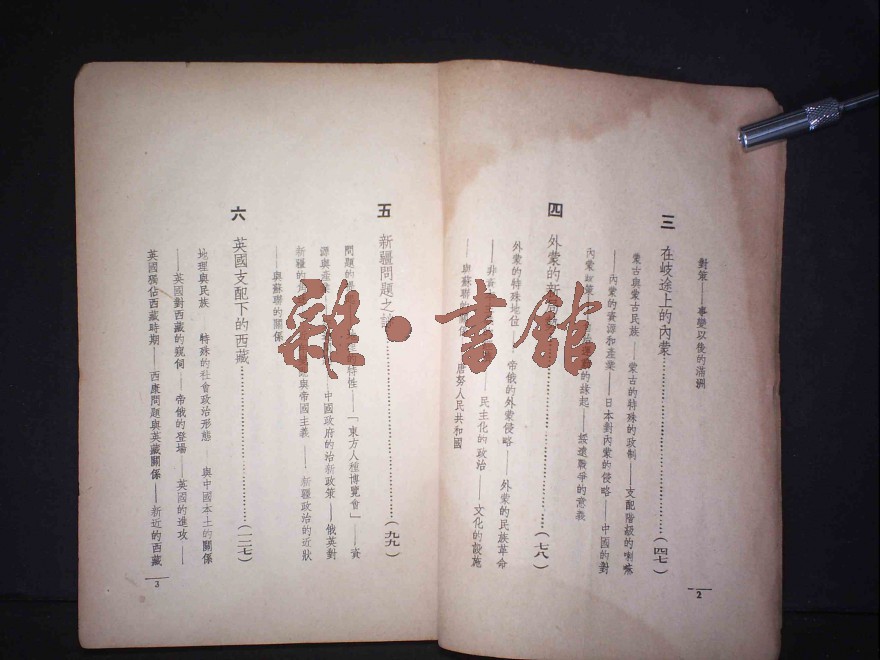 對策——事變以後的滿洲
三 在岐途上的內蒙……(四七)
蒙古與蒙古民族——蒙古的特殊的政制——支配階級的喇嘛
——內蒙的資源和產業——日本對內蒙的侵略——中國的對
內蒙 的緣起——綏遠戰爭的意義
四 外蒙的新 ……(七八)
外蒙的特殊地位——帝俄的外蒙侵略——外蒙的民族革命
——非資 民主化的政治——文化的設施
——與蘇聯的關係 唐努人民共和國
2
五 新疆問題之謎……(九九)
問題的 特性——「東方人種博覽會」——資
源與產業 中國政府的治新政策——俄英對
新疆的角 與帝國主義——新疆政治的近狀
——與蘇聯的關係
六 英國支配下的西藏……(一二七)
地理與民族 特殊的社會政治形態 與中國本土的關係
——英國對西藏的窺伺——帝俄的登場——英國的進攻——
英國獨佔西藏時期——西康問題與英藏關係——新近的西藏
3
雜·書館